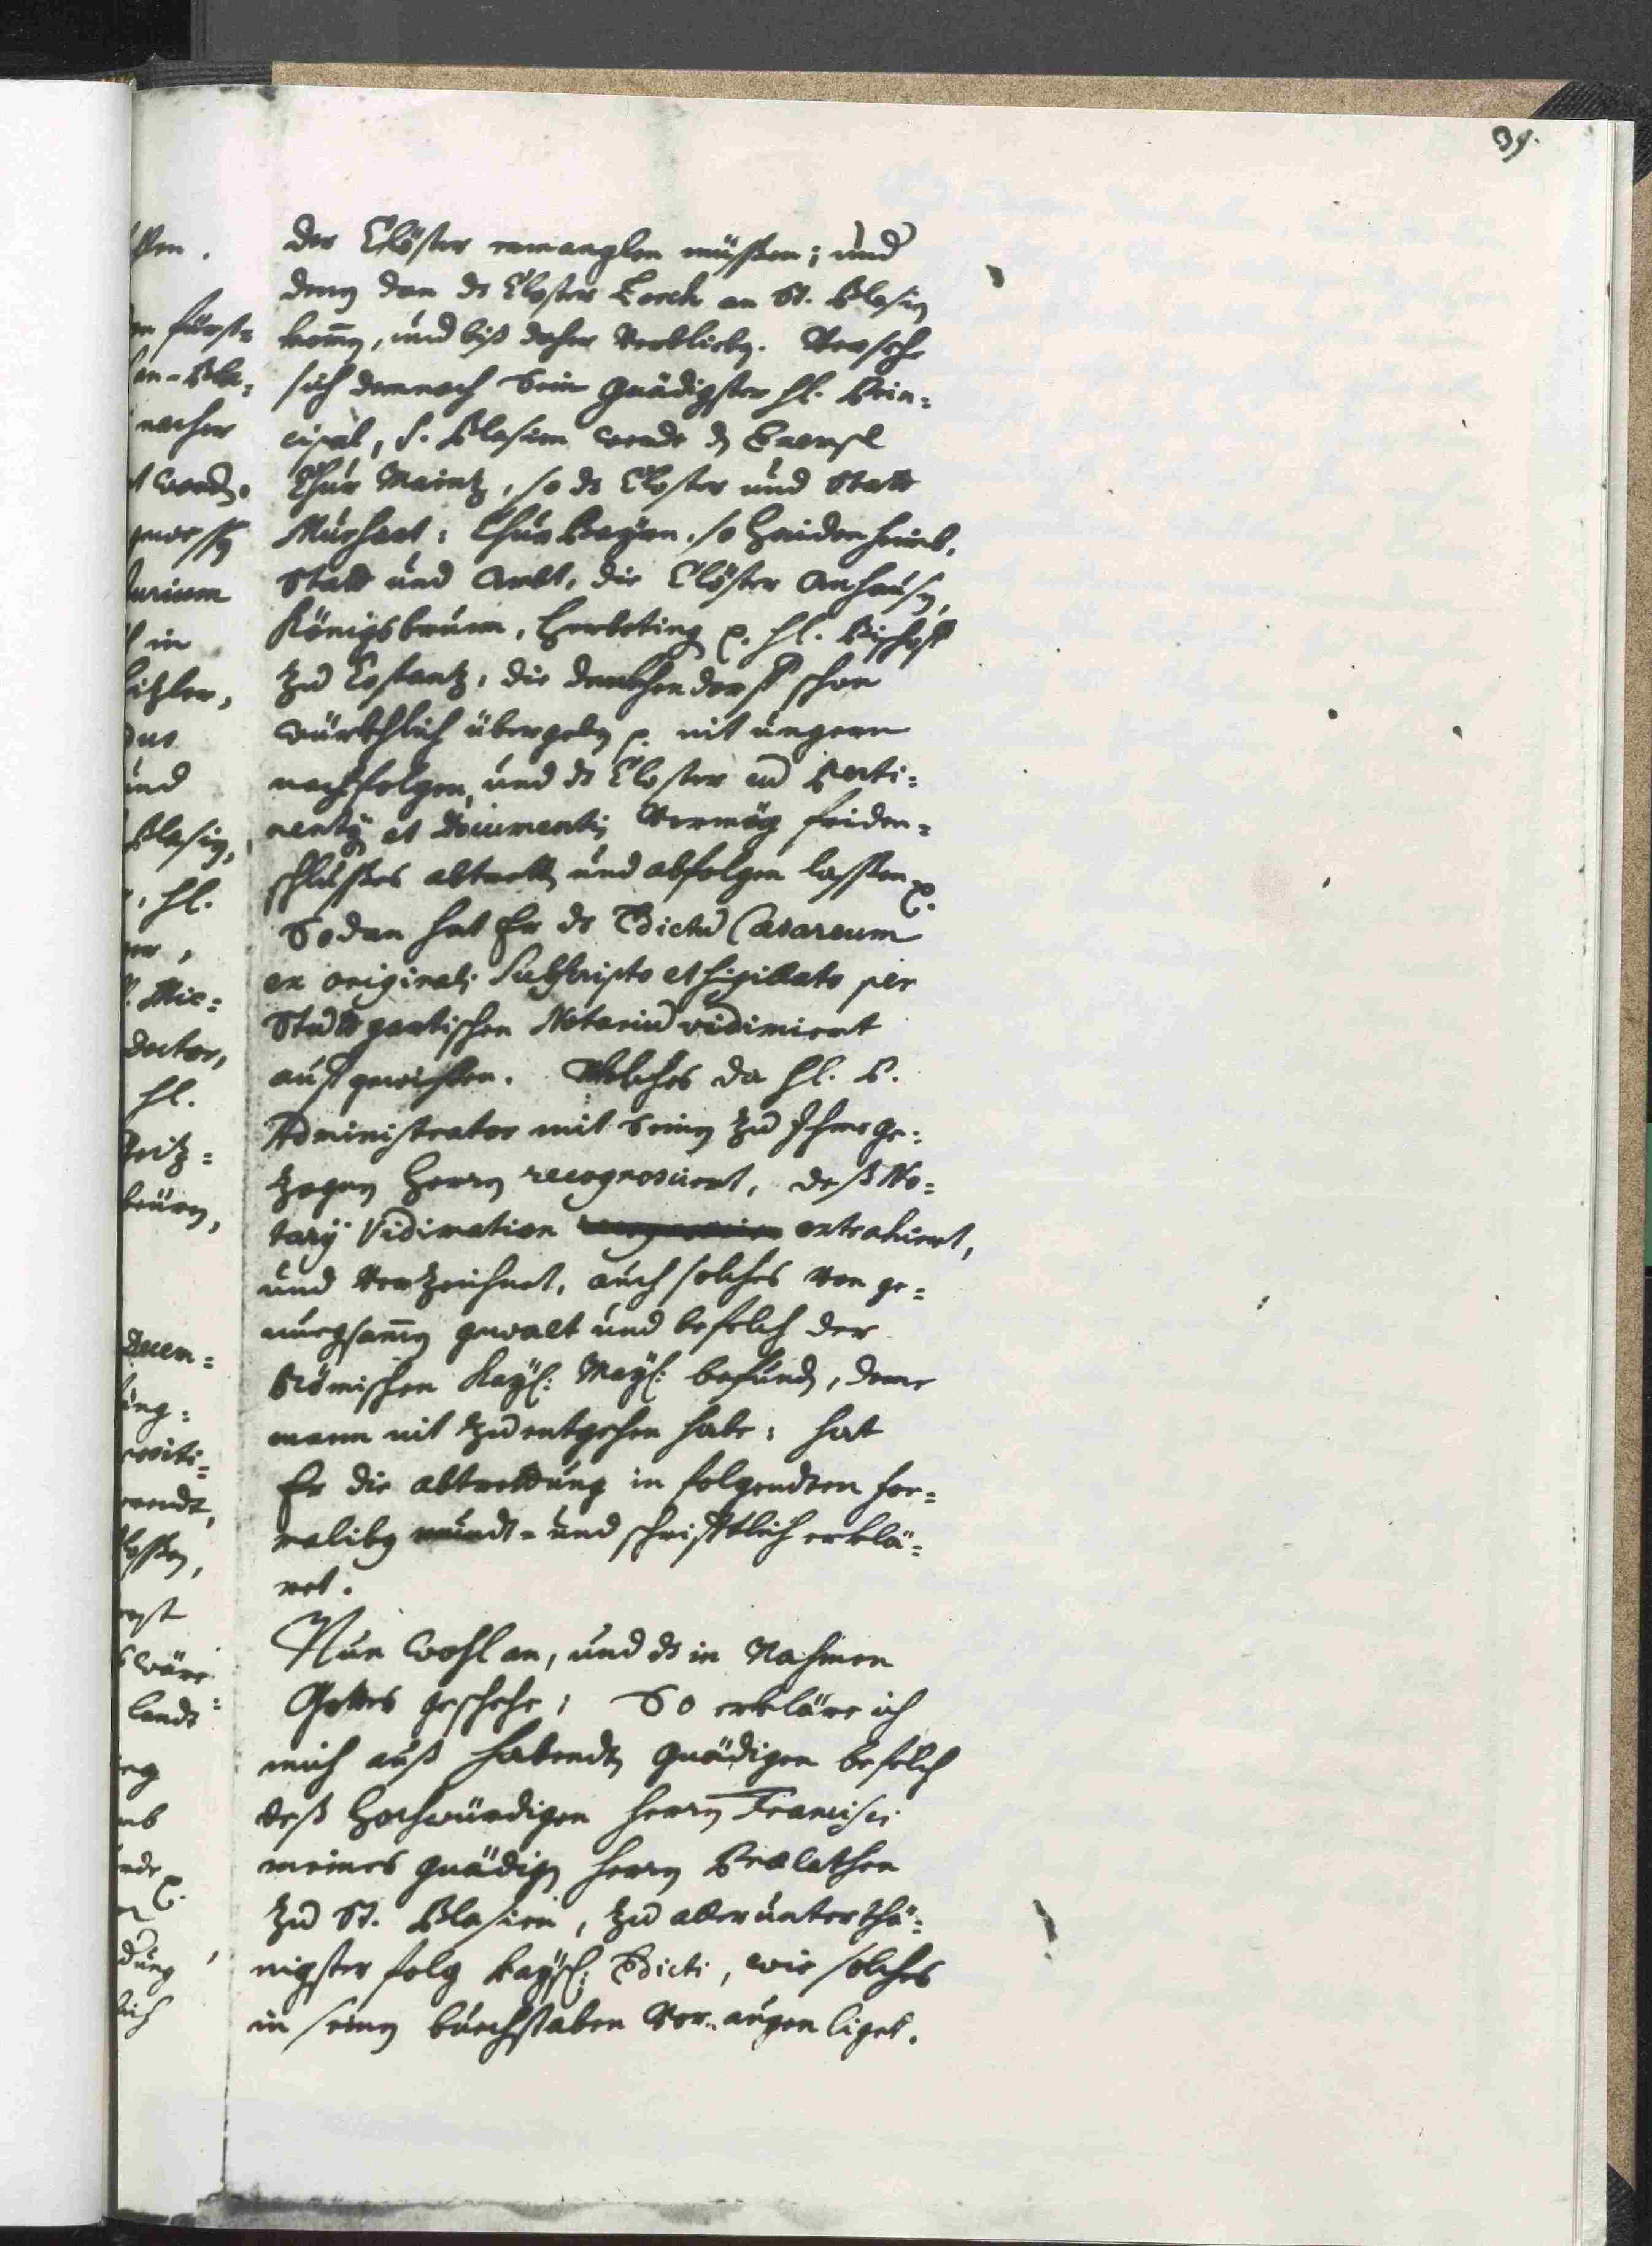 39.
der Clöster ermanglen müssen; und
deny dan ds Closter Lorch an St. Blasiy
komḿ, und biß daher verbliebn. Versehe
sich demnach Sein Gnädigster hl. Prin=
cipal, S. Blasien werde dz Exempl
Chur Maintz, so ds Closter und Statt
Murhart: Chur Bayrn, so Haidenheimb,
Statt und Ambt, die Clöster Anhausn,
Königsbrunn, Herbrting p. hl. Bischoff
zu Costantz, die denkhendorff schon
würkhlich übergebn p. nit ungern
nachfolgen, und ds Closter cu Perti=
nentÿ et Documentis Vermög friden=
schlusses abtrettn und abfolgen lassen p.
Sodan hat Er ds Edictu Cæsareum
ex originali Subscripto et sigillato per
Stuttgartischen Notariu vidimiert
aufgewisen. Welches da hl. P.
Administrator mit Seiny zu Ihme ge=
zogny Herrn recognosciert, deß No=
tarÿ Vidimation extrahiert,
und Verzeichnet, auch solches von ge=
nuegsamḿ gewalt und befelch der
Römischen Kayl: Mayl: befundn, deme
mann nit zu entgehen habe: hat
Er die abtrettung in folgendten for=
maliby mundt= und schrifftlich erklä=
ret.
Nun wohl an, und ds in Nahmen
Gottes geschehe; So erkläre ich
mich auß habendtn gnädigen befelch
deß Hochwürdigen Herrn Francisci
meines gnädign Herrn Prælathen
zu St. Blasien, zu allerunterthä=
nigster folg Kayl: Edicti, wie solches
in seiny buechstaben Vor augen liget.